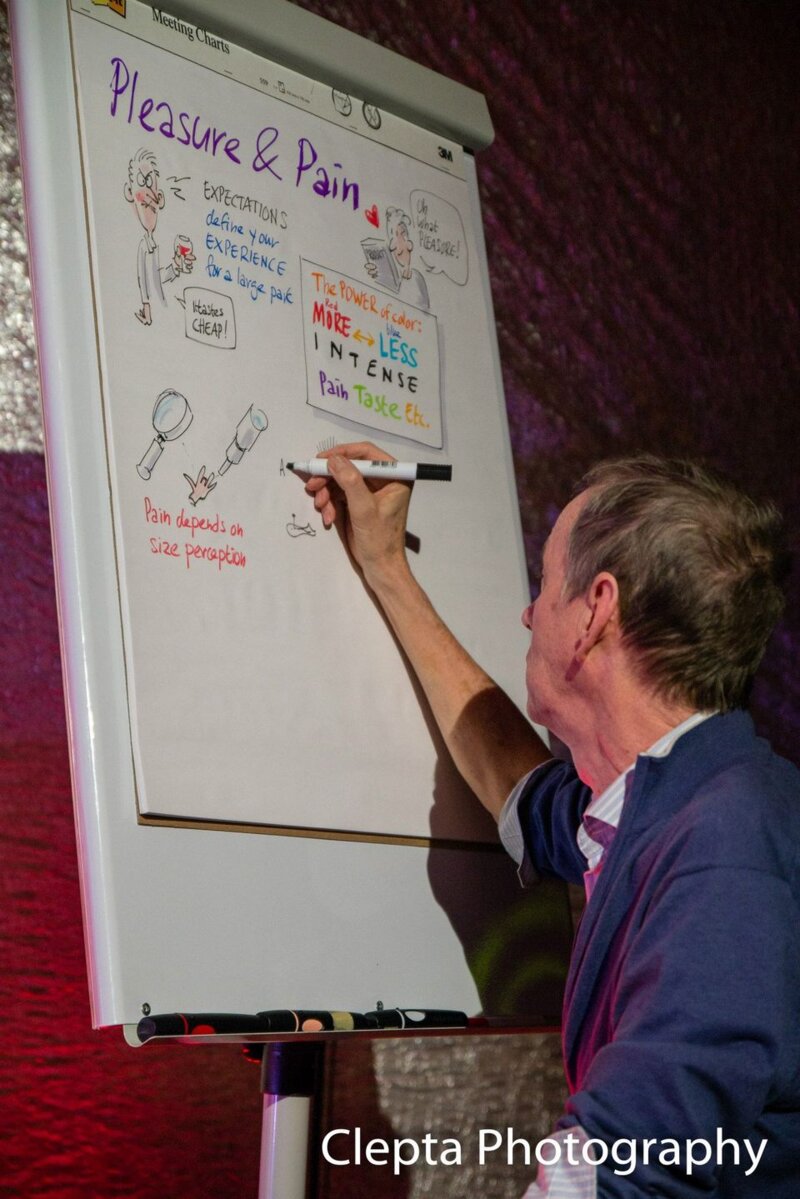 Meeting Charts
3M
Pleasure & Pain
EXPECTATIONS
define your
EXPERIENCE
for a large part
It tastes
CHEAP!
Oh
what
PLEASURE!
The POWER of color:
Red
blue
MORE ↔ LESS
INTENSE
Pain Taste Etc.
Pain depends on
size perception
A
Clepta Photography